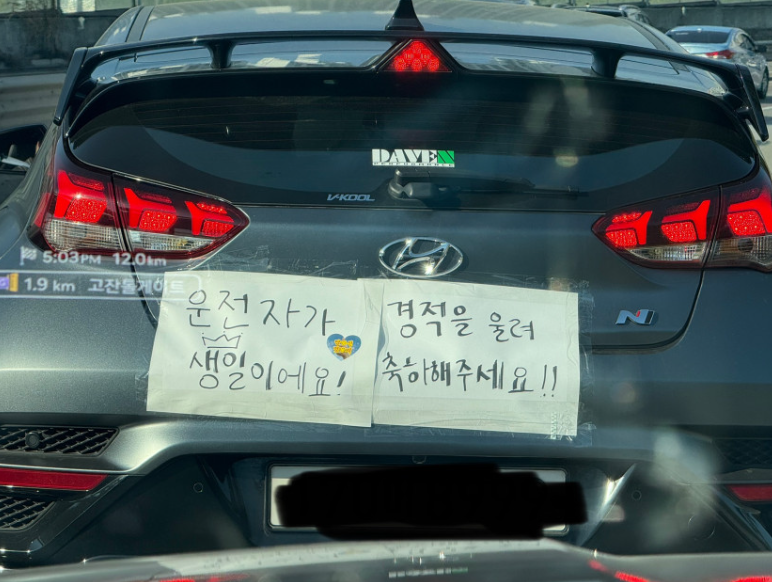 DAVEN
V-KOOL
5:03PM 12.0km
1.9 km 고잔톨게이트
N
운전자가
생일이에요!
경적을 울려
축하해주세요!!